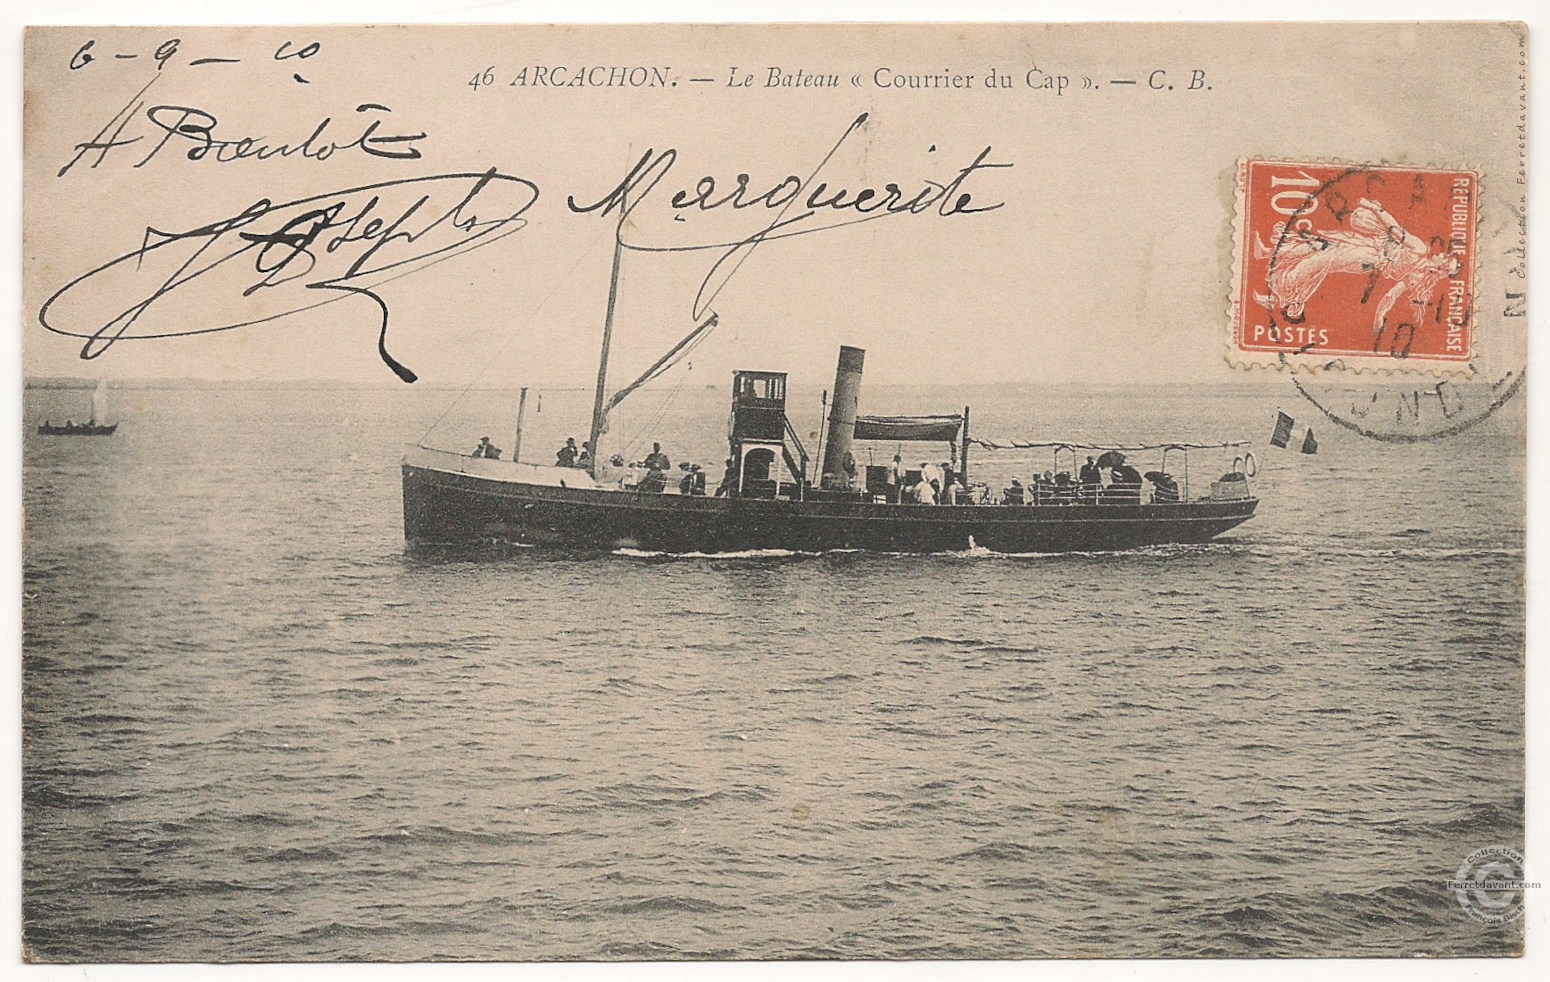 6 - 9 - 10
46 ARCACHON. — Le Bateau « Courrier du Cap ». — C. B.
A Bientôt
Joseph Marguerite
10c
REPUBLIQUE FRANÇAISE
POSTES
ARCACHON
7 -10
10
GIRONDE
Collection Ferretdavant.com
Collection
Ferretdavant.com
François Bisch